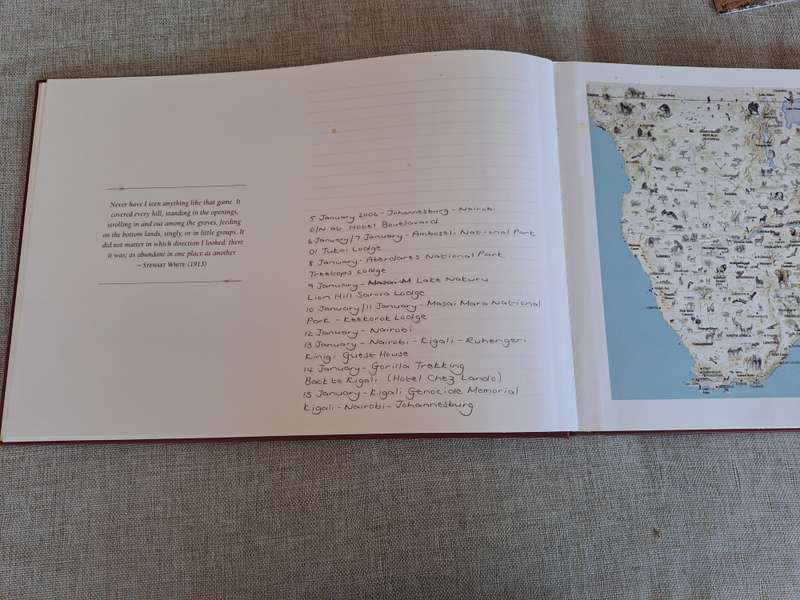 Never have I seen anything like that game. It
covered every hill, standing in the openings,
strolling in and out among the groves, feeding
on the bottom lands, singly, or in little groups. It
did not matter in which direction I looked; there
it was; as abundant in one place as another
~ Stewart White (1913)
5 January 2006 - Johannesburg - Nairobi
O/N at Hotel Boulevard
6 January/7 January - Amboseli National Park
Ol Tukai Lodge
8 January - Aberdares National Park
Treetops Lodge
9 January - Lake Nakuru
Lion Hill Sarova Lodge
10 January/11 January - Masai Mara National
Park - Keekorok Lodge
12 January - Nairobi
13 January - Nairobi - Kigali - Ruhengeri
Kinigi Guest House
14 January - Gorilla Trekking
Back to Kigali (Hotel Chez Lando)
15 January - Kigali Genocide Memorial
Kigali - Nairobi - Johannesburg